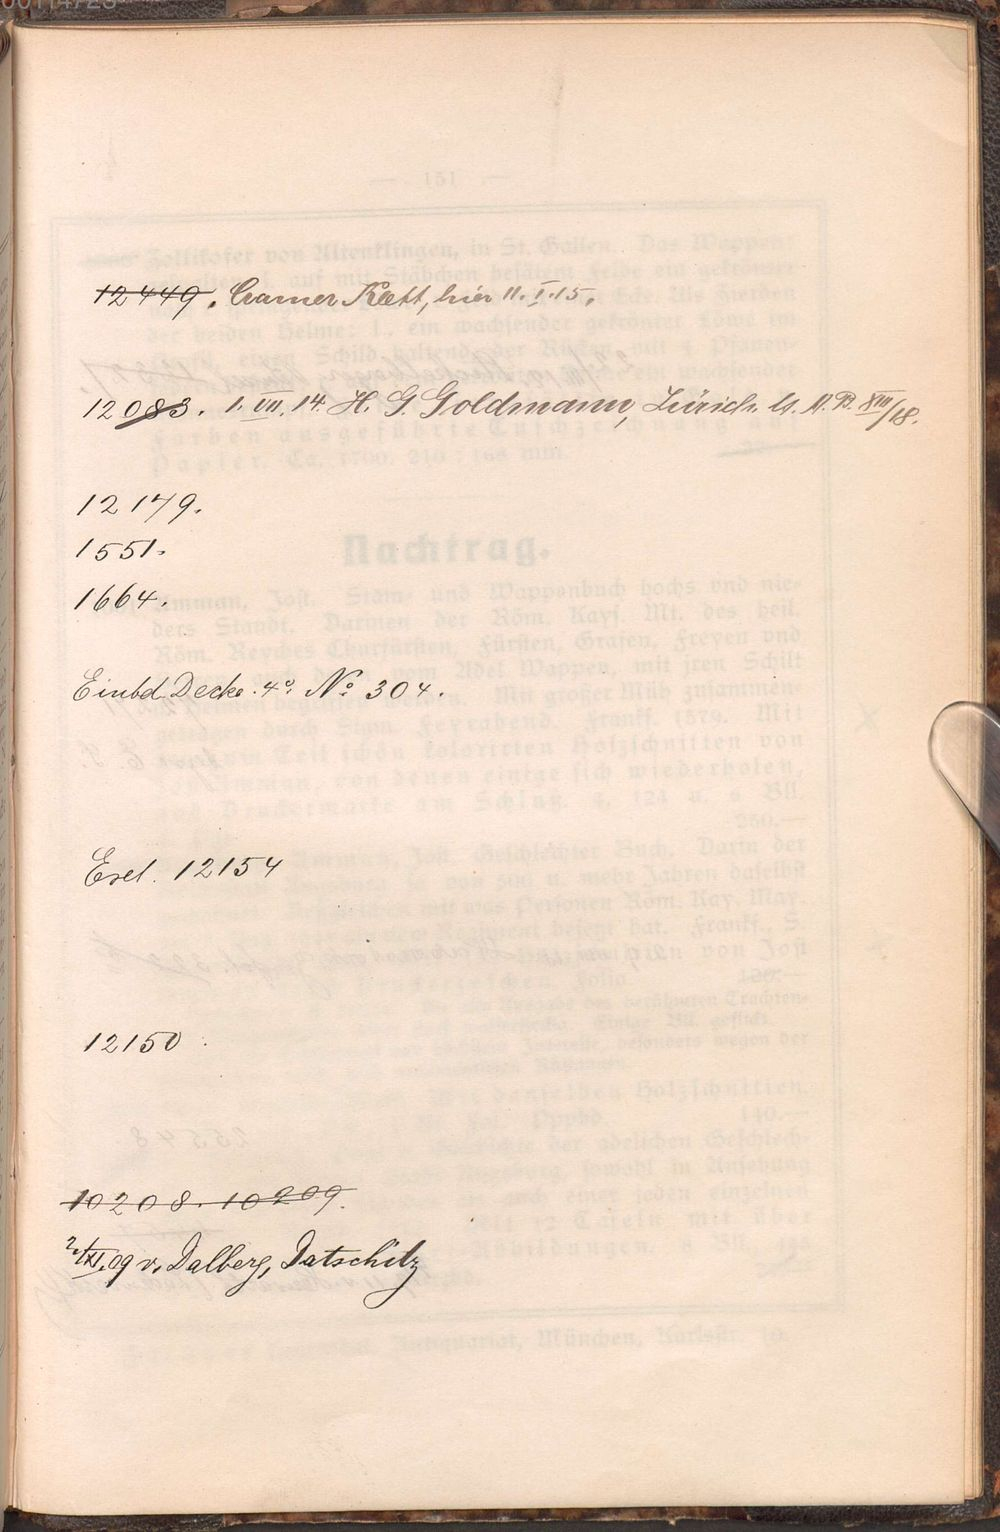 12449. Cramer Klett, hier 11.I.15.
12083. 1.VII.14. H. G. Goldmann, Zürich. XIII/18.
12179.
1551.
1664.
Einbd. Decke. 4°. N° 304.
Exl. 12154
12150
10208. 10209.
2/XI.09 v. Dalberg, Datschitz